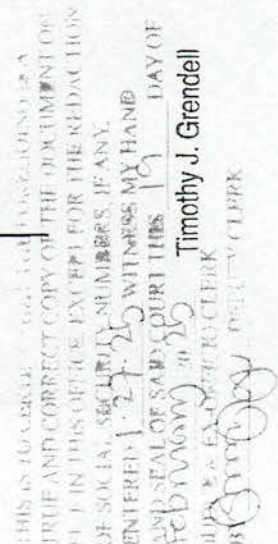 THIS IS TO CERTIFY THE FOREGOING IS A
TRUE AND CORRECT COPY OF THE DOCUMENT ON
FILE IN THIS OFFICE EXCEPT FOR THE REDACTION
OF SOCIAL SECURITY NUMBERS, IF ANY.
ENTERED 1-27-25 WITNESS MY HAND
AND SEAL OF SAID COURT THIS 19 DAY OF
February 20 25
Timothy J. Grendell
JUDGE & EX-OFFICIO CLERK
BY DEPUTY CLERK